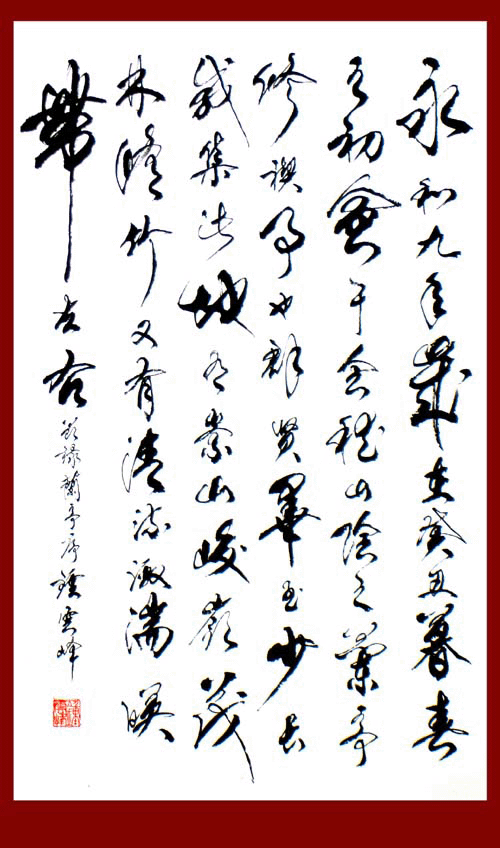 永和九年歲在癸丑暮春
之初會于會稽山陰之蘭亭
修禊事也群賢畢至少長
咸集此地有崇山峻嶺茂
林脩竹又有清流激湍映
帶左右
節録蘭亭序 雲峰